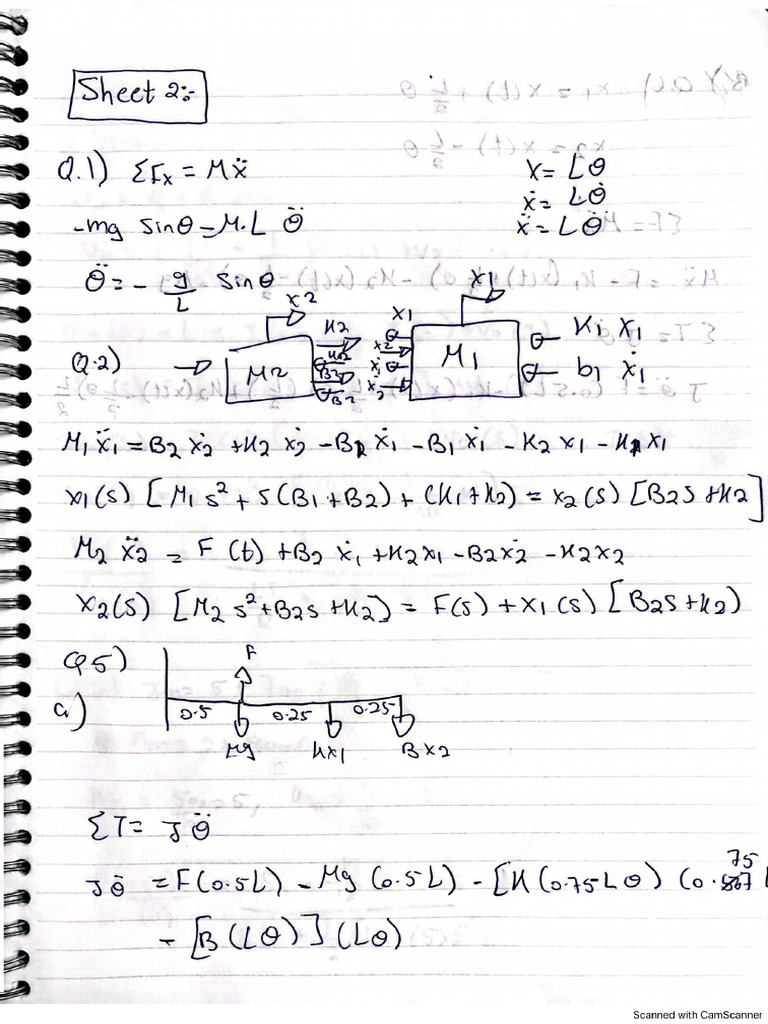 Sheet 2:-
Q.1) ΣFx = Mẍ
x = Lθ
ẋ = Lθ̇
-mg sinθ = M.L θ̈
ẍ = Lθ̈
θ̈ = - g/L sinθ
x2
x1
Q.2)
M2
K2
B2
B2
x1
x2
ẋ1
ẋ2
M1
K1 x1
b1 ẋ1
M1 ẍ1 = B2 ẋ2 + K2 ẋ2 - B2 ẋ1 - B1 ẋ1 - K2 x1 - K1 x1
x1(s) [M1 s² + s(B1+B2) + (K1+K2) = x2(s) [B2s + K2]
M2 ẍ2 = F(t) + B2 ẋ1 + K2x1 - B2ẋ2 - K2x2
x2(s) [M2 s² + B2s + K2] = F(s) + x1(s) [B2s + K2)
Q5)
F
a)
0.5
0.25
0.25
Mg
Kx1
Bx2
ΣT = Jθ̈
Jθ̈ = F(0.5L) - Mg(0.5L) - [K(0.75Lθ)(0.75 L
- [B(Lθ)](Lθ)
Scanned with CamScanner